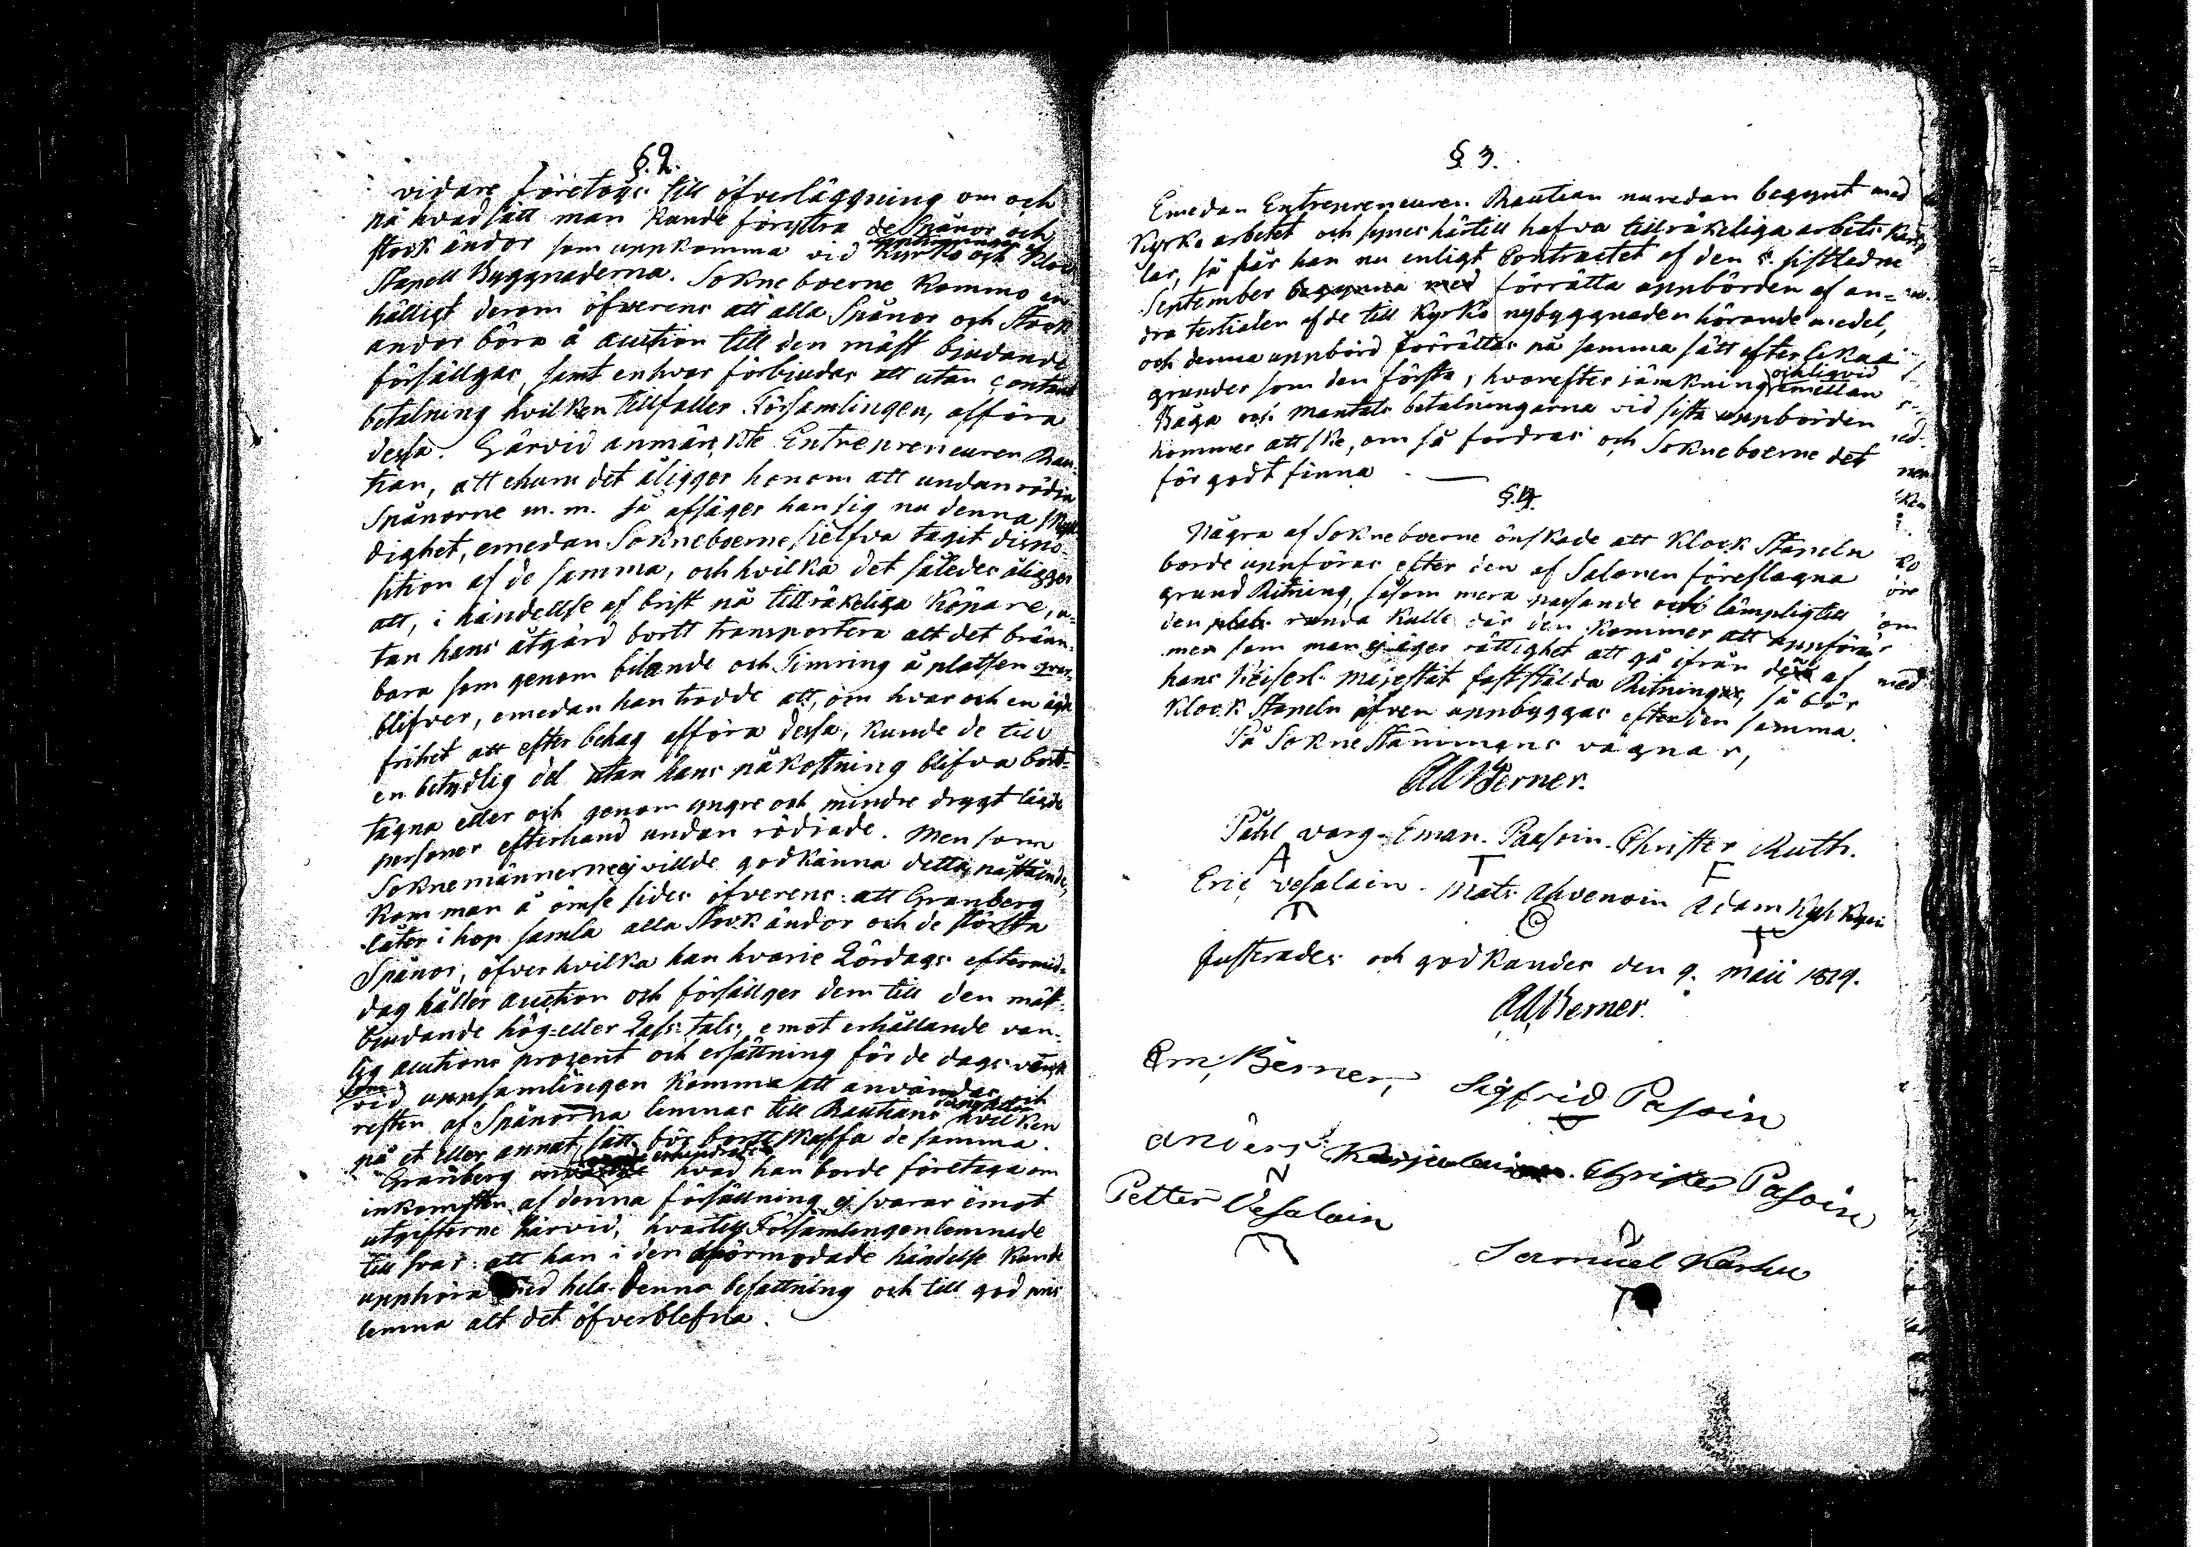 §.2.
vidare företogs till öfverläggning om och
på hvad sätt man kunde föryttra de Spånor och
stock ändor som uppkomma vid Kyrko och Klock
Stapell Byggnaderna. Sokneboerne kommo en-
hälligt derom öfverens att alla Spånor och Stock
andor böra å auction till den mäst biudande
försälljas, samt enhvar förbiudas att utan contant
betalning hvilken tillfaller Församlingen, afföra
dessa. Härvid anmärkte Entrepreneuren Rau-
tian, att ehuru det åligger honom att undanrödja
Spånorne m.m. så afsäger han sig nu denna skyl-
dighet, emedan Sokneboerne sielfva tagit dispo-
sition af de samma, och hvilka det således åligger
att, i händellse af brist på tillräkeliga Köpare, u-
tan hans åtgärd bortt transportera alt det bränn-
bara som genom bilande och Timring å platsen
blifver, emedan han trodde att, om hvar och en ägde
frihet att efter behag afföra dessa, kunde de till
en betydlig del utan hans påkostning blifva bort-
tagna eller och genom yngre och mindre drygt
personer efterhand undan rödiade. Men som
Soknemännerne ej villde godkänna detta påstående,
kom man å ömse sidor öfverens: att Granberg
låter i hop samla alla Stock ändor och de största
Spånor, öfver hvilka han hvarie Lördags eftermid-
dag håller auction och försällger dem till den mäst-
biudande hög- eller Lass-tals, emot erhållande van-
lig auctions procent och ersättning för de dagsverk
som vid uppsamlingen komma att användas, och
resten af Spånorna lemnas till Rautians hvilken
på et eller annat sätt bör bortt skaffa de samma.
Granberg hvad han borde företaga om
inkomsten af denna försällning ej svarar emot
utgifterne härvid, hvartill Församlingen lemnade
till svar: att han i den oförmodade händelse kunde
upphöra med hela denna befattning och till god pris
lemna alt det öfverblefna.
§ 3.
Emedan Entrepreneuren Rautian nuredan begynt med
Kyrko arbetet och synes härtill hafva tillräkeliga arbets kar-
lar, så får han nu enligt Contractet af den 5. sistledne
September begynna med förrätta uppbörden af an-
dra tertialen af de till Kyrko nybyggnaden hörande medel,
och denna uppbörd förrättas på samma sätt efter lika
grunder som den första, hvarefter jämkning och liqvid emellan
Båga och Mantals betalningarna vid sista uppbörden
kommer att ske, om så fordras och Sokneboerne det
för godt finna
§.4.
Några af Sokneboerne önskade att Klock Stapeln
borde uppföras efter den af Salonen föreslagna
grund Ritning, såsom mera passande och lämpligt till
den plats runda kulle där den kommer att uppföras
men som man ej äger rättighet att gå ifrån den af
hans Keiserl. Majestät fastställda Ritning, så bör
Klock Stapeln äfven uppbyggas efter den samma.
På Sokne Stämmans vägnar,
Ad Berner.
Påhl varg. Eman. Paasoin. Christer Ruth.
Eric Vesalain. Mats Ahvenoin Adam
Justerades och godkändes den 9. Maii 1819.
Ad Berner.
Em: Berner, Sigfrid Pasoin
anders Christer Pasoin
Petter Vesalain
Samuel Karhu